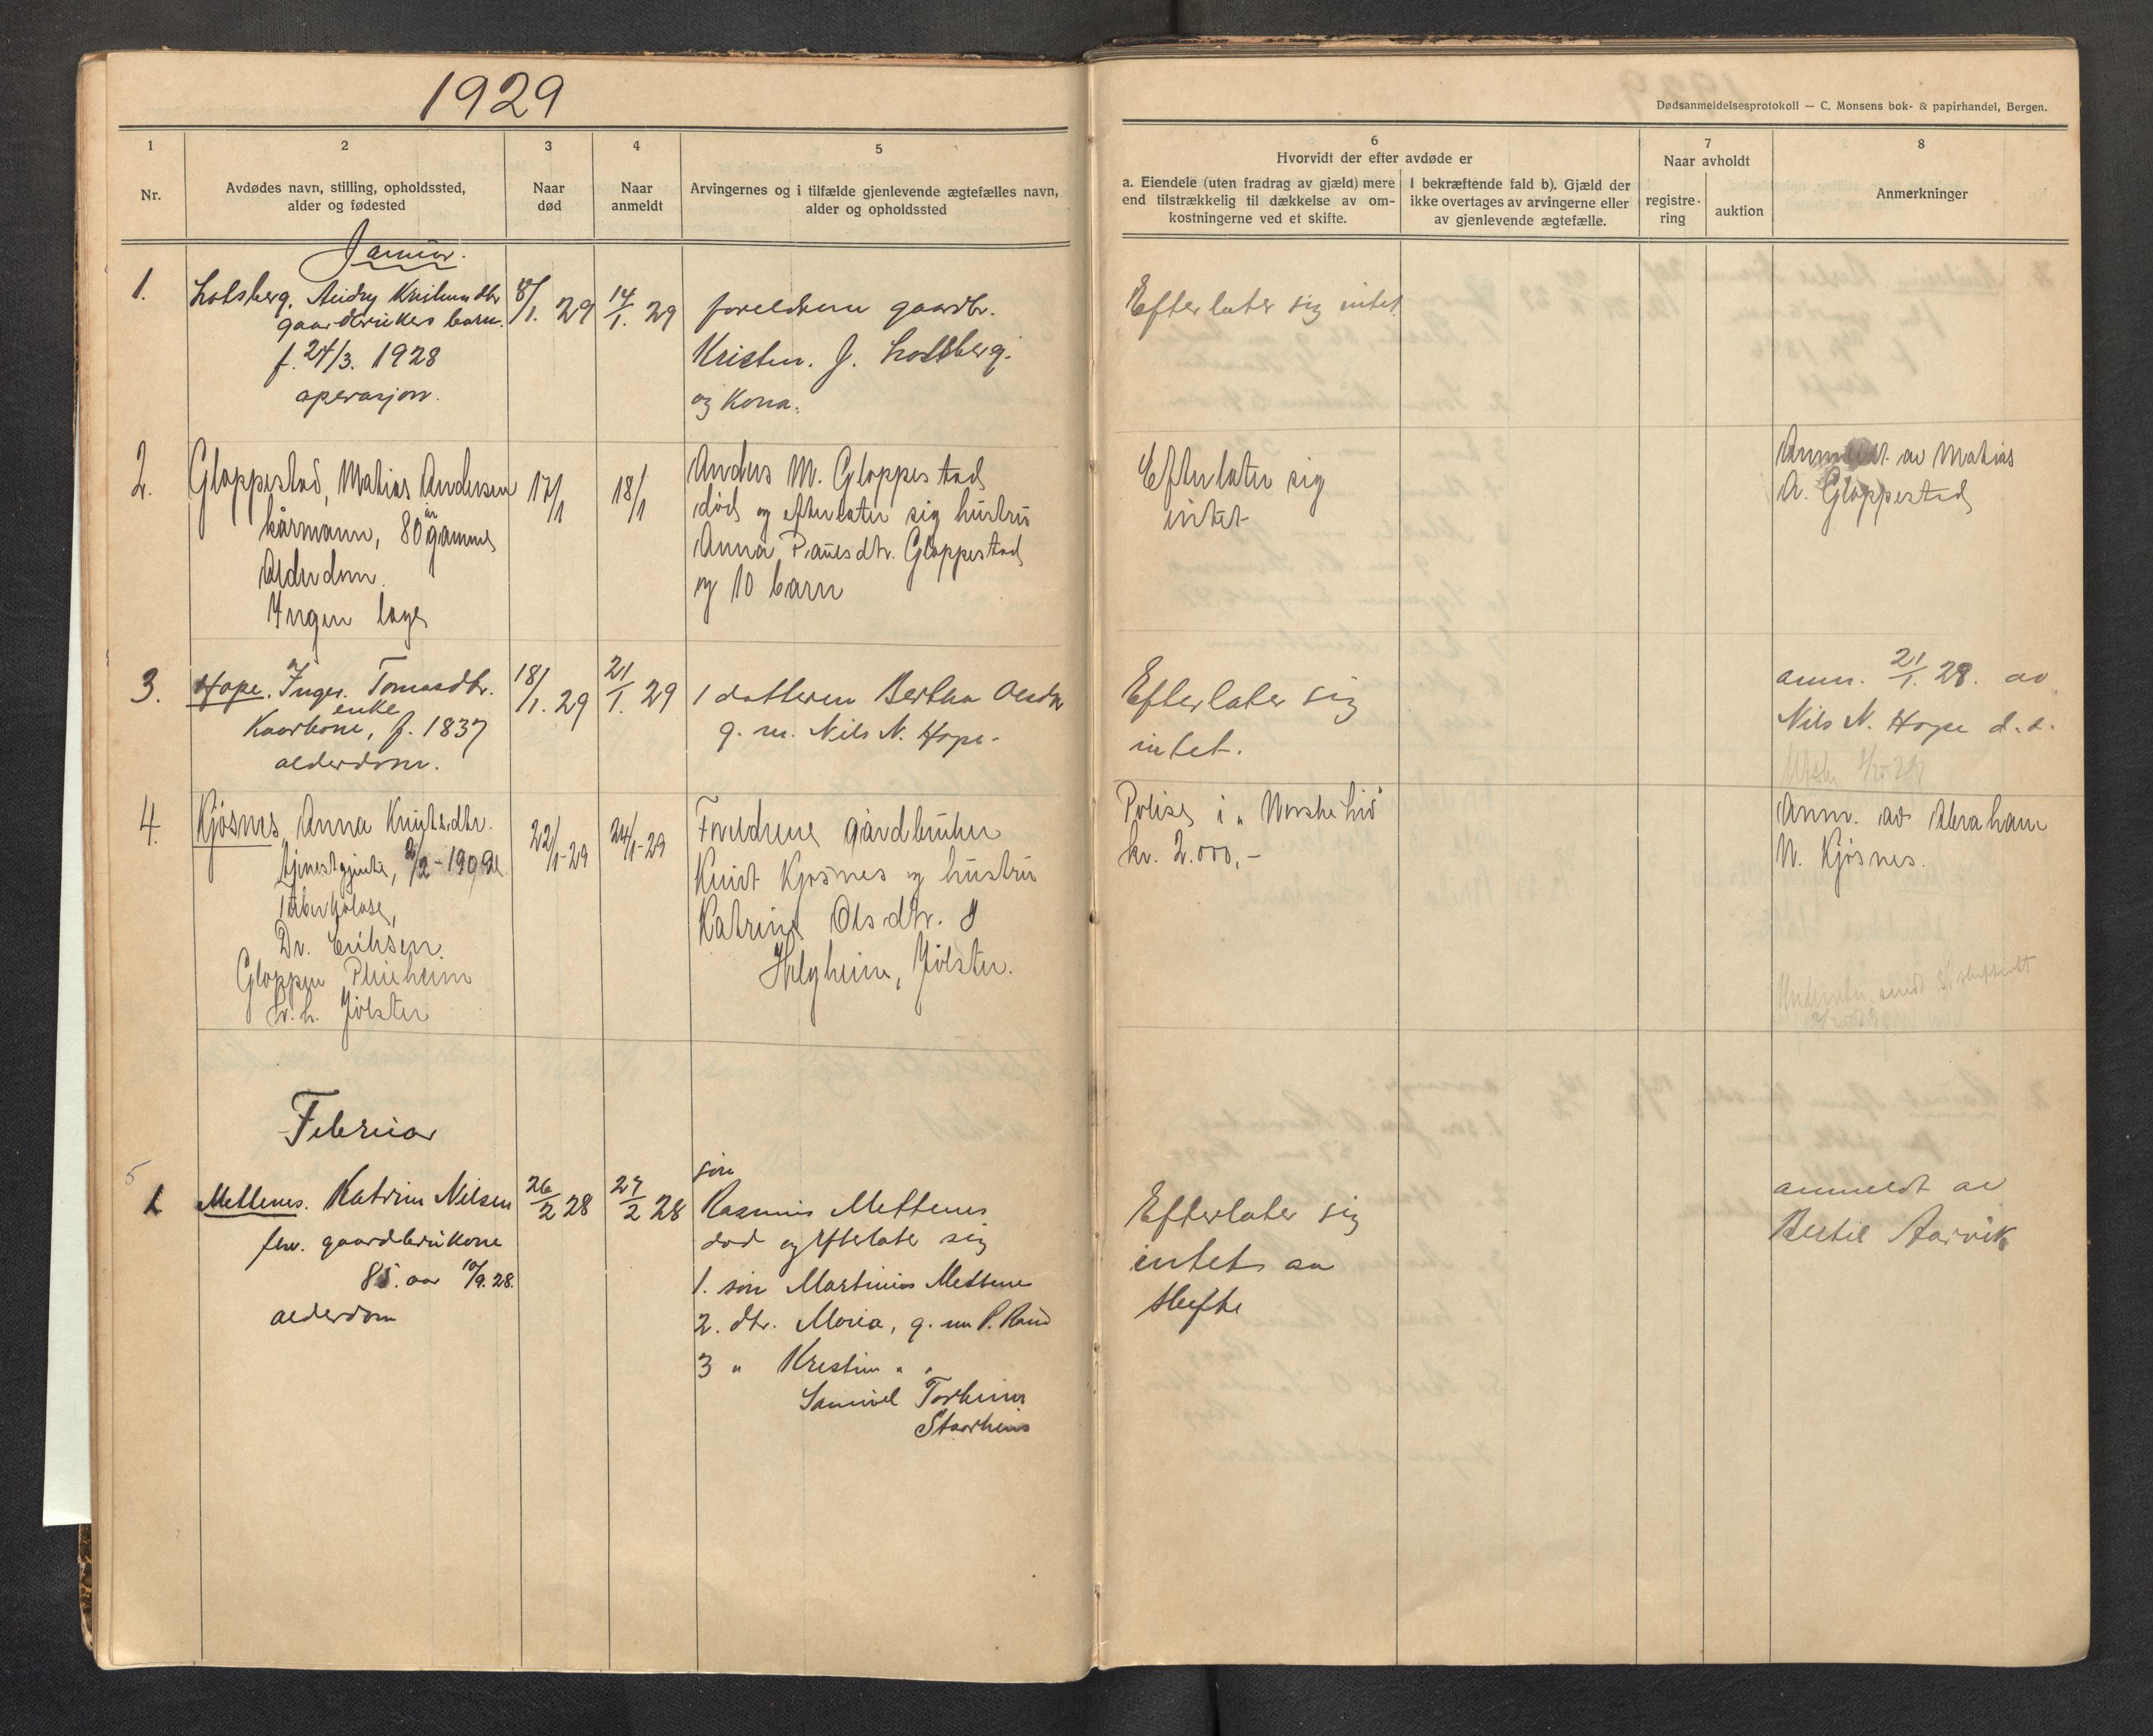 1929
Dødsanmeldelsesprotokoll — C. Monsens bok- & papirhandel, Bergen.
1
Nr.
2
Avdødes navn, stilling, opholdssted,
alder og fødested
3
Naar
død
4
Naar
anmeldt
5
Arvingernes og i tilfælde gjenlevende ægtefælles navn,
alder og opholdssted
6
Hvorvidt der efter avdøde er
a. Eiendele (uten fradrag av gjæld) mere
end tilstrækkelig til dækkelse av om-
kostningerne ved et skifte.
I bekræftende fald b). Gjæld der
ikke overtages av arvingerne eller
av gjenlevende ægtefælle.
7
Naar avholdt
registre-
ring
auktion
8
Anmerkninger
Januar.
1.
Lotsberg,
gaardbrukers barn.
f. 24/3. 1928
operasjon.
8/1. 29
14/1. 29
foreldrene gaardbr.
Kristen. J. Lotsberg.
og Kona.
Efterlater sig intet
2.
Gloppestad, Matias Andersen
kårmann, 80 år gammel
Alderdom.
Ingen læge
17/1
18/1
Anders M. Gloppestad
død og efterlater sig hustru
Anna Paulsdtr. Gloppestad
og 10 barn
Efterlater sig
intet
Anmeldt av Matias
A. Gloppestad
3.
Hope. Inger. Tomasdtr.
enke
Kaarkone, f. 1837
alderdom.
18/1. 29
21/1. 29
1 datteren Bertha Olsdtr
g. m. Nils N. Hope.
Efterlater sig
intet.
anm. 21/1. 28. av
Nils N. Hope d.s.
4.
Kjösnes, Anna Knutsdtr.
tjenestgjente,
Tuberkulose,
Dr. Eriksen.
Gloppen Pleieheim
h. h. Jölster
22/1-29
24/1-29
Foreldrene gårdbruker
Knut Kjösnes og hustru
Katrine Olsdtr.
Helgheim, Jölster.
Polise i „Norske Liv"
kr. 2.000,-
Anm. av Abraham
N. Kjösnes.
Februar
5
1
Mettenes. Katrine Nilsen
fhv. gaardbrukone
85. aar
alderdom
26/2 28
27/2 28
søn
Rasmus Mettenes
død og efterlater sig
1. søn Martinus Mettenes
2. dtr. Maria, g. m P. Rand
3 " Kristine " "
Samuel Torheim
Starheim
Efterlater sig
intet aa
skifte
anmeldt av
Bertil Aarvik